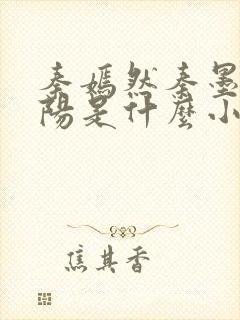 秦嫣然秦墨
陽是什麼小
焦其香